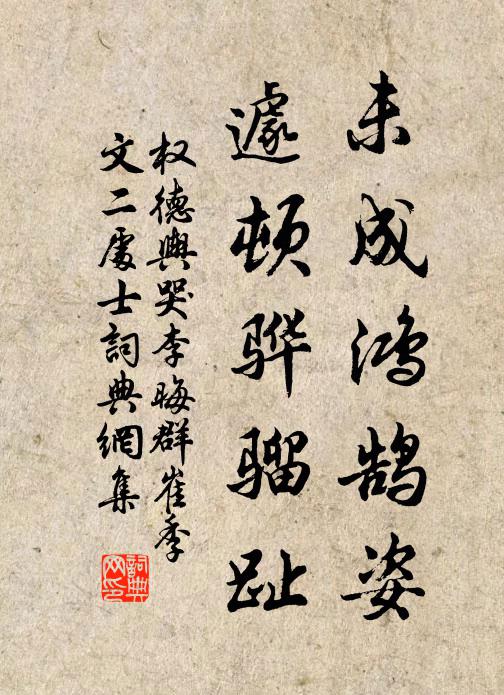 未成鸿鹄姿
遽顿骅骝趾
权德舆哭李晦群崔季
文二处士詞典網集
詞典
网印